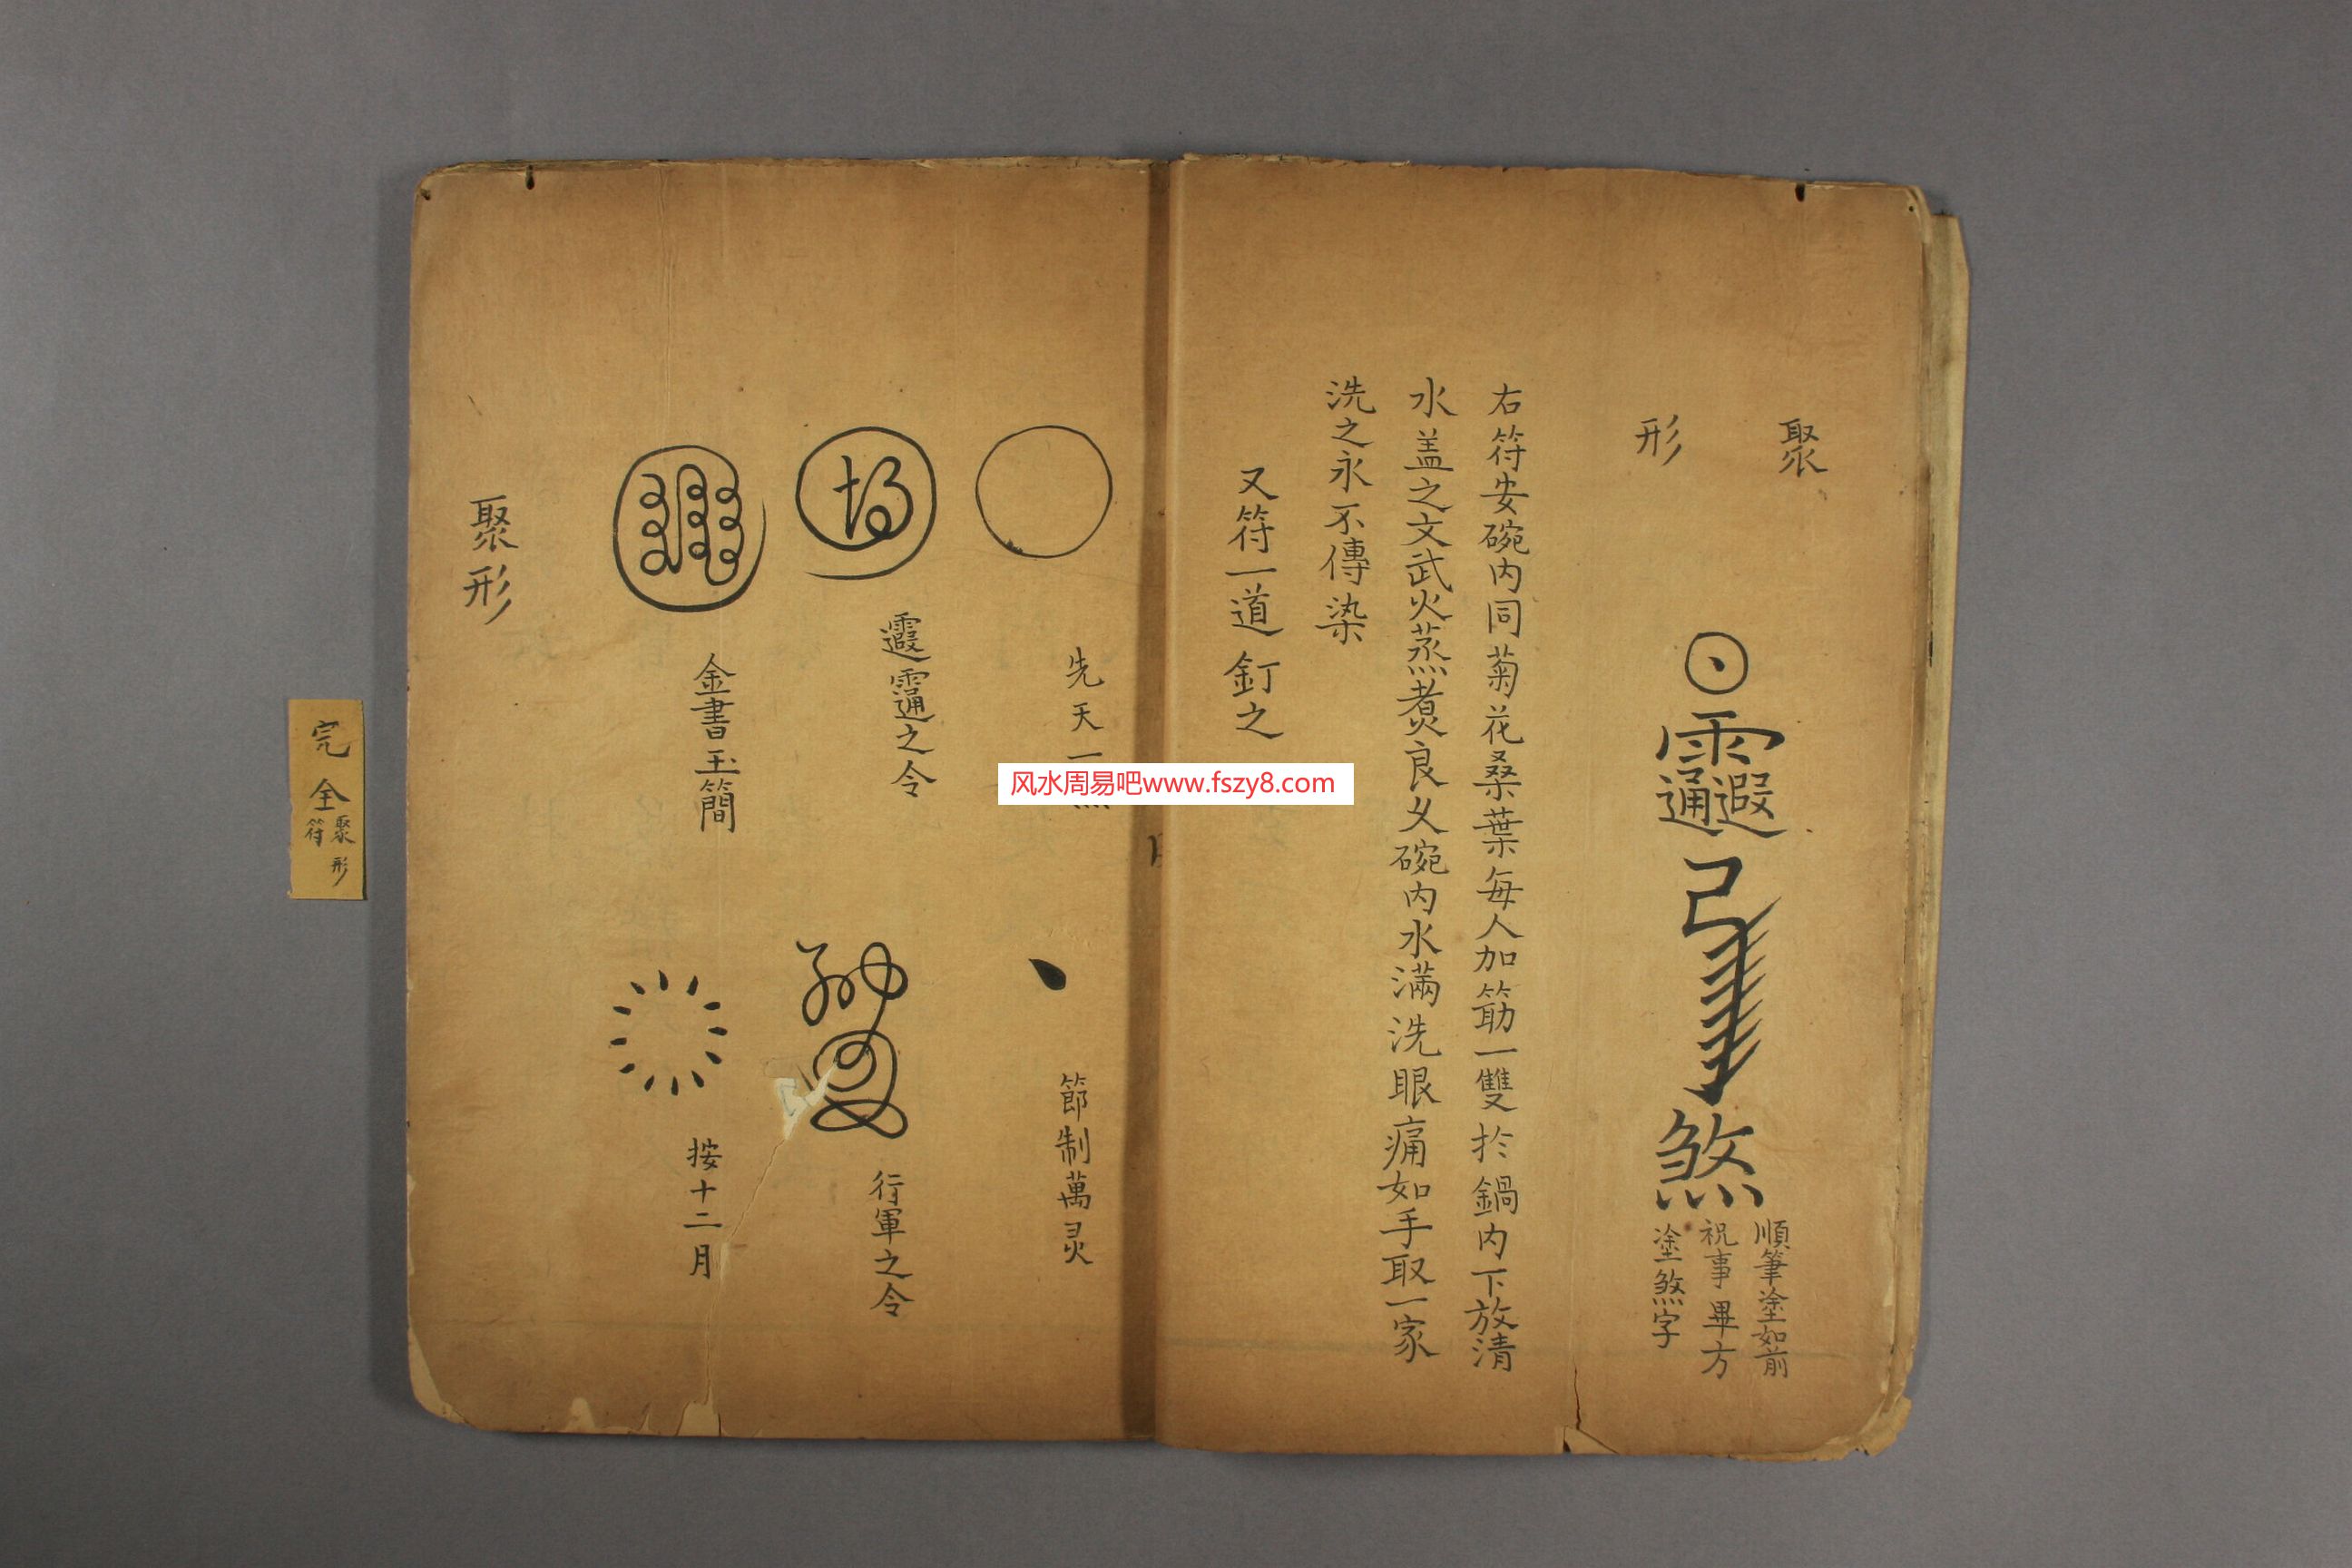 聚
形
順筆塗如前
祝事畢方
塗煞字
煞
右符安碗內同菊花桑葉每人加筯一雙扵鍋內下放清
水盖之文武火蒸煮良乆碗內水滿洗眼痛如手取一家
洗之永不傳染
又符一道釘之
先天一
節制萬灵
之令
行軍之令
金書玉簡
按十二月
聚形
完全
聚形
符
风水周易吧www.fszy8.com